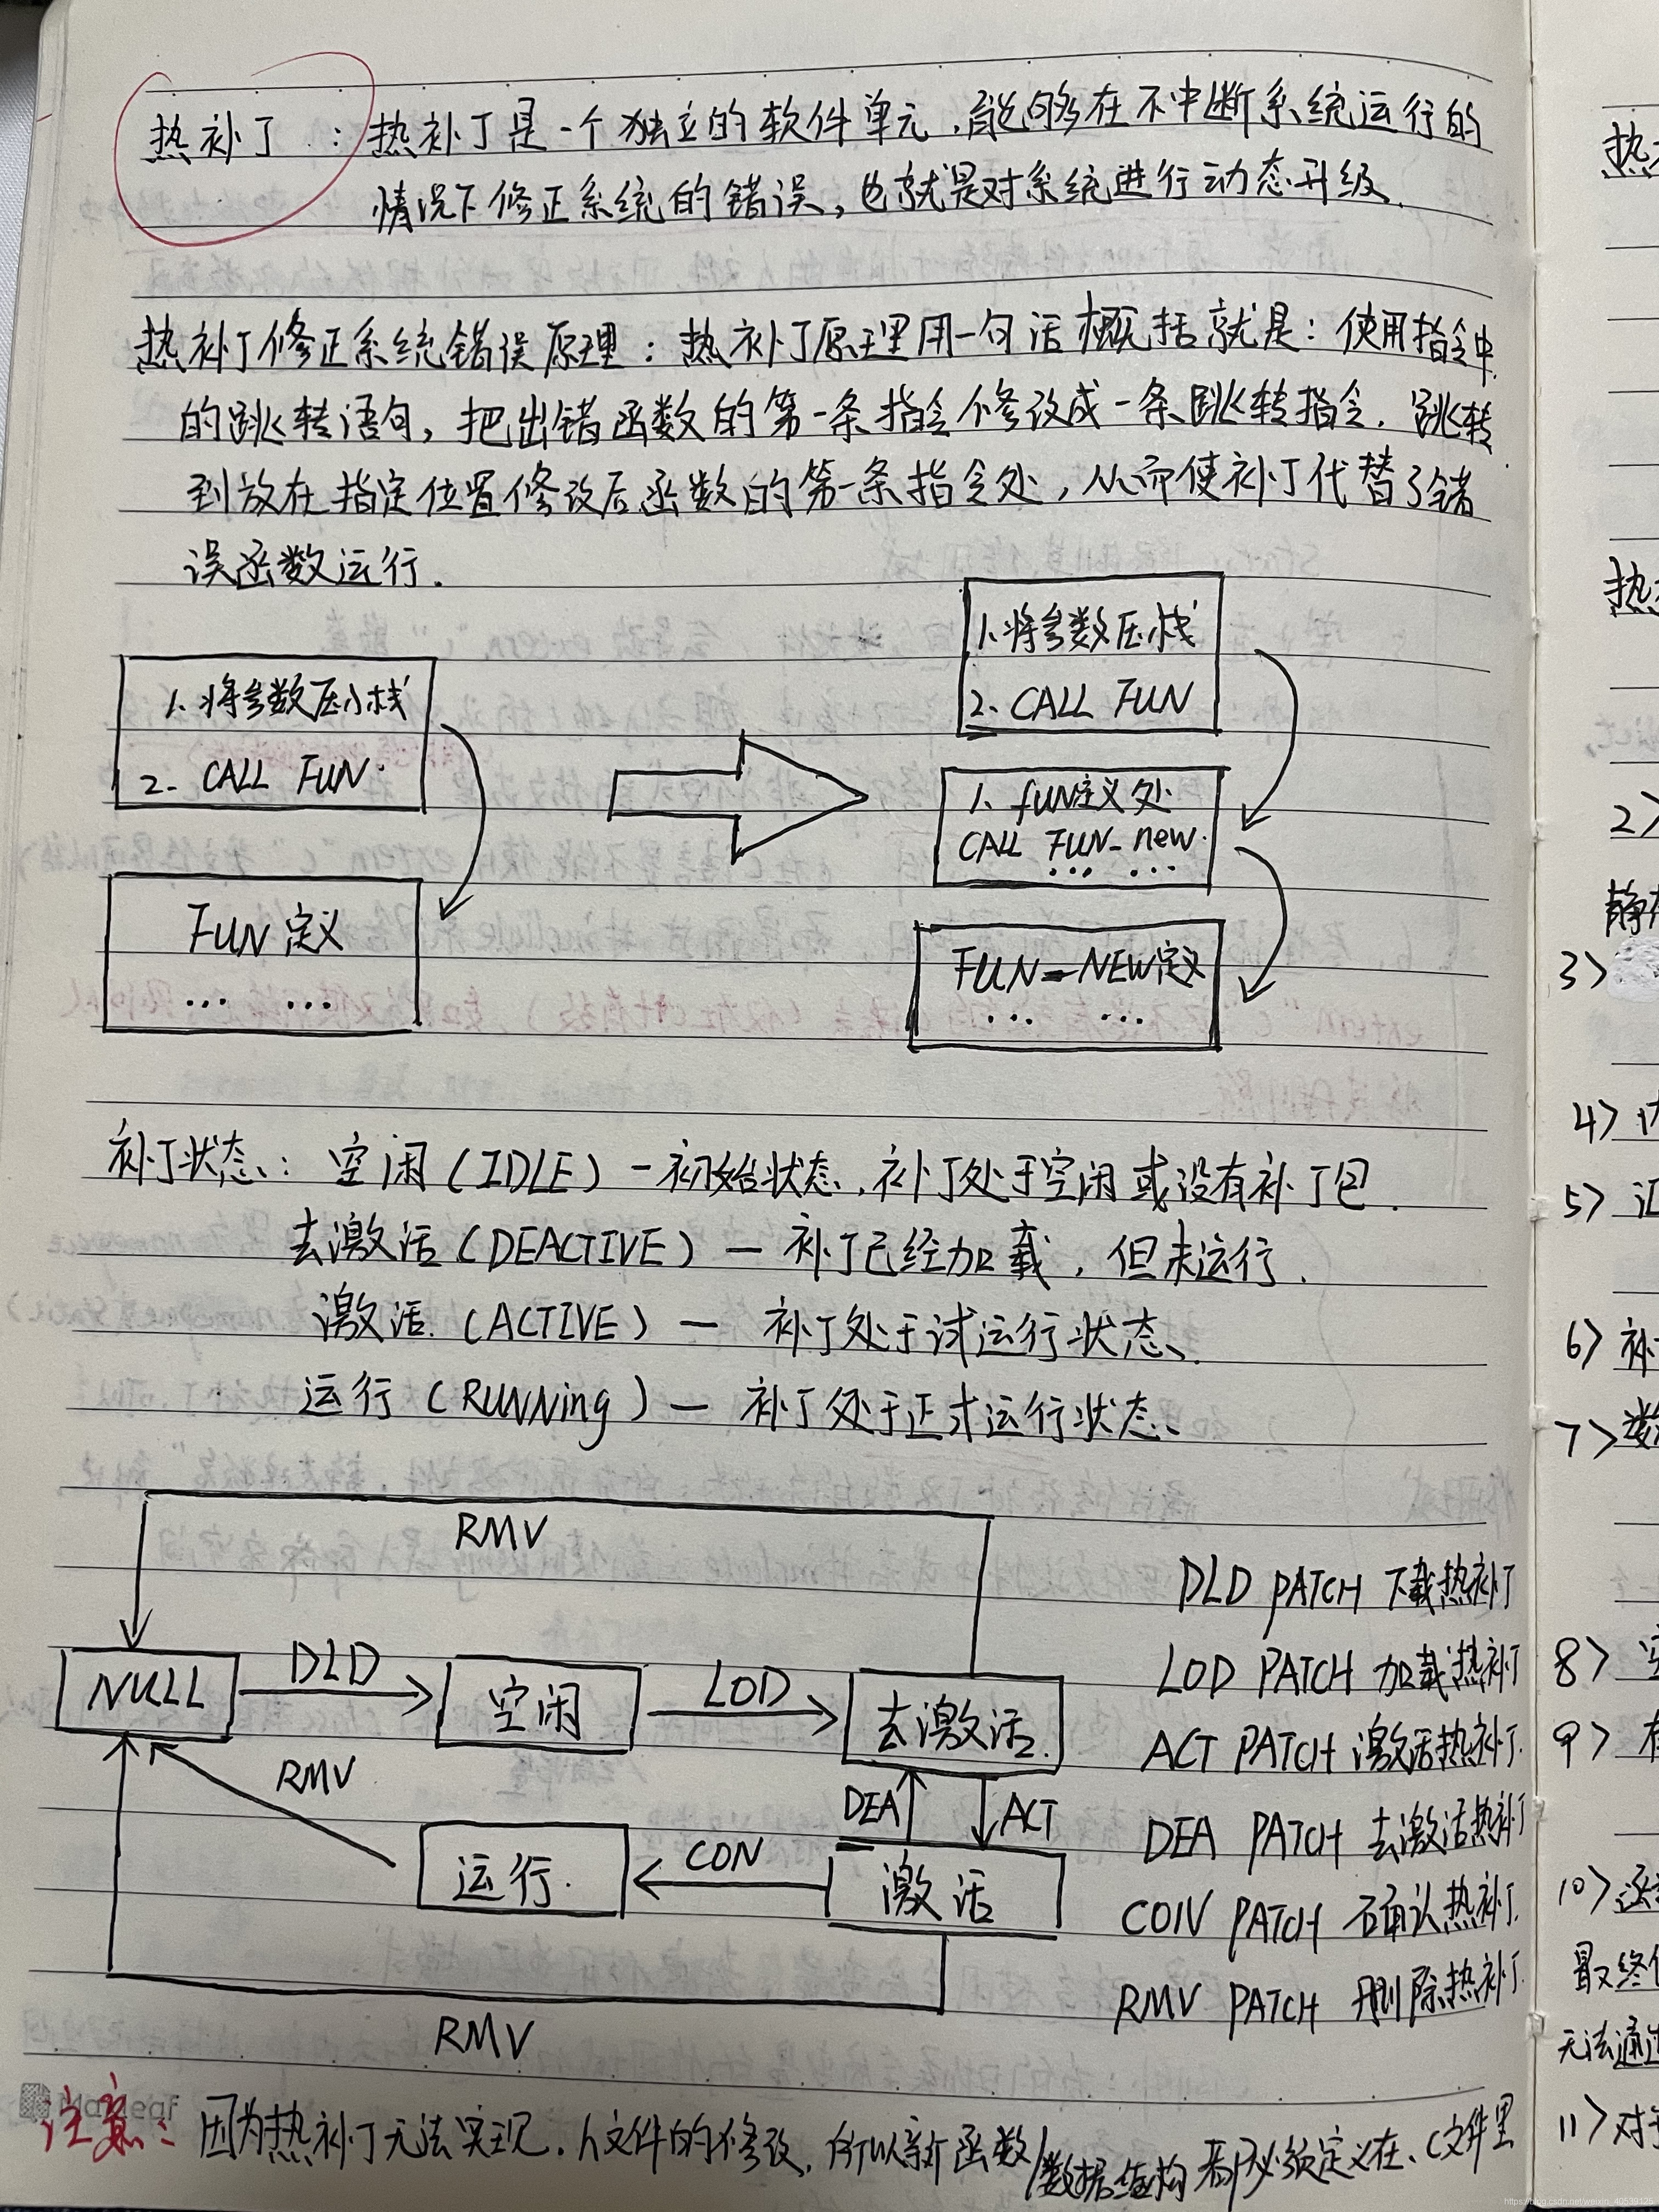 热补丁：热补丁是一个独立的软件单元，能够在不中断系统运行的
情况下修正系统的错误，也就是对系统进行动态升级.
热补丁修正系统错误原理：热补丁原理用一句话概括就是：使用指令中
的跳转语句，把出错函数的第一条指令修改成一条跳转指令.跳转
到放在指定位置修改后函数的第一条指令处，从而使补丁代替了错
误函数运行.
1.将参数压入栈
2. CALL FUN.
FUN定义
... ...
1.将参数压栈
2. CALL FUN
1. fUN定义处
CALL FUN_new.
... ...
FUN_NEW定义
... ...
补丁状态：空闲(IDLE) - 初始状态，补丁处于空闲或没有补丁包.
去激活(DEACTIVE) — 补丁已经加载，但未运行.
激活.(ACTIVE) — 补丁处于试运行状态.
运行(RUNNing) — 补丁处于正式运行状态.
RMV
NULL
DLD
空闲
LOD
去激活.
RMV
DEA
ACT
运行.
CON
激活
RMV
DLD PATCH 下载热补丁
LOD PATCH 加载热补丁
ACT PATCH 激活热补丁.
DEA PATCH 去激活热补丁
CON PATCH 确认热补丁.
RMV PATCH 删除热补丁.
注意：因为热补丁无法实现.h文件的修改，所以新函数/数据结构都必须定义在.c文件里
热
热
2>
静
3>
4>
5> 汇
6> 补
7> 数
8>
9>
10> 函
最终
无法通过
11> 对
https://blog.csdn.net/weixin_40539125